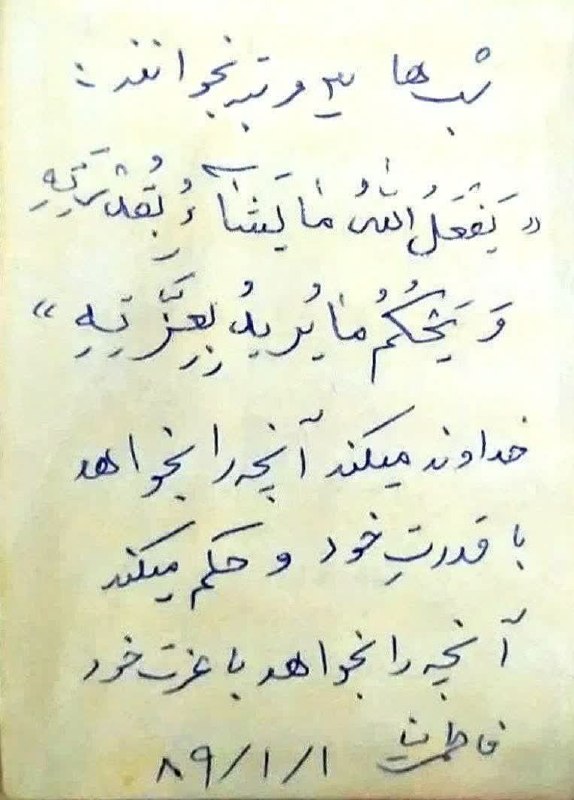 شب ها ۳ مرتبه بخوانند :
« یَفْعَلُ اللّٰهُ مٰا یَشٰآءُ بِقُدْرَتِهِ
وَ یَحْکُمُ مٰا یُریدُ بِعِزَّتِهِ »
خداوند میکند آنچه را بخواهد
با قدرتِ خود و حکم میکند
آنچه را بخواهد با عزت خود
۸۹/۱/۱